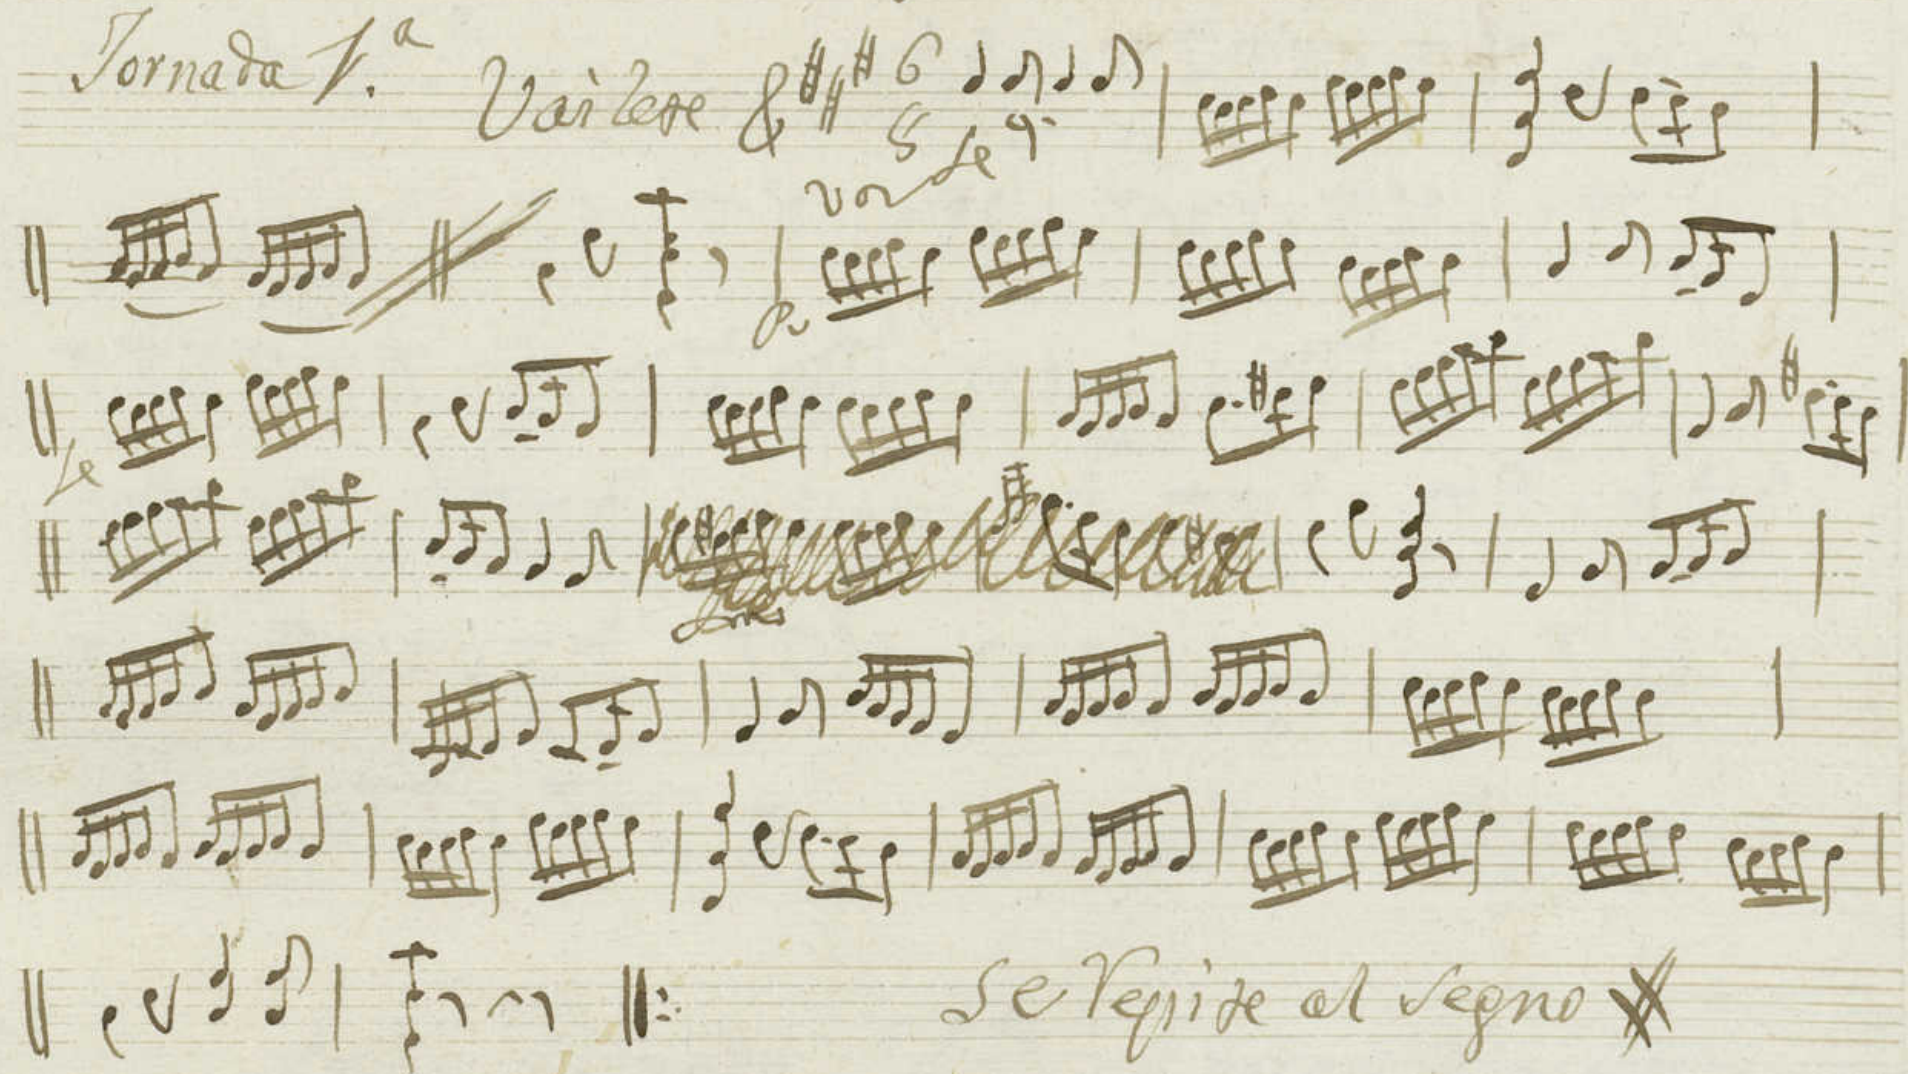 Jornada 1.ª Vailete 6
8
voz
Se Repite al Segno